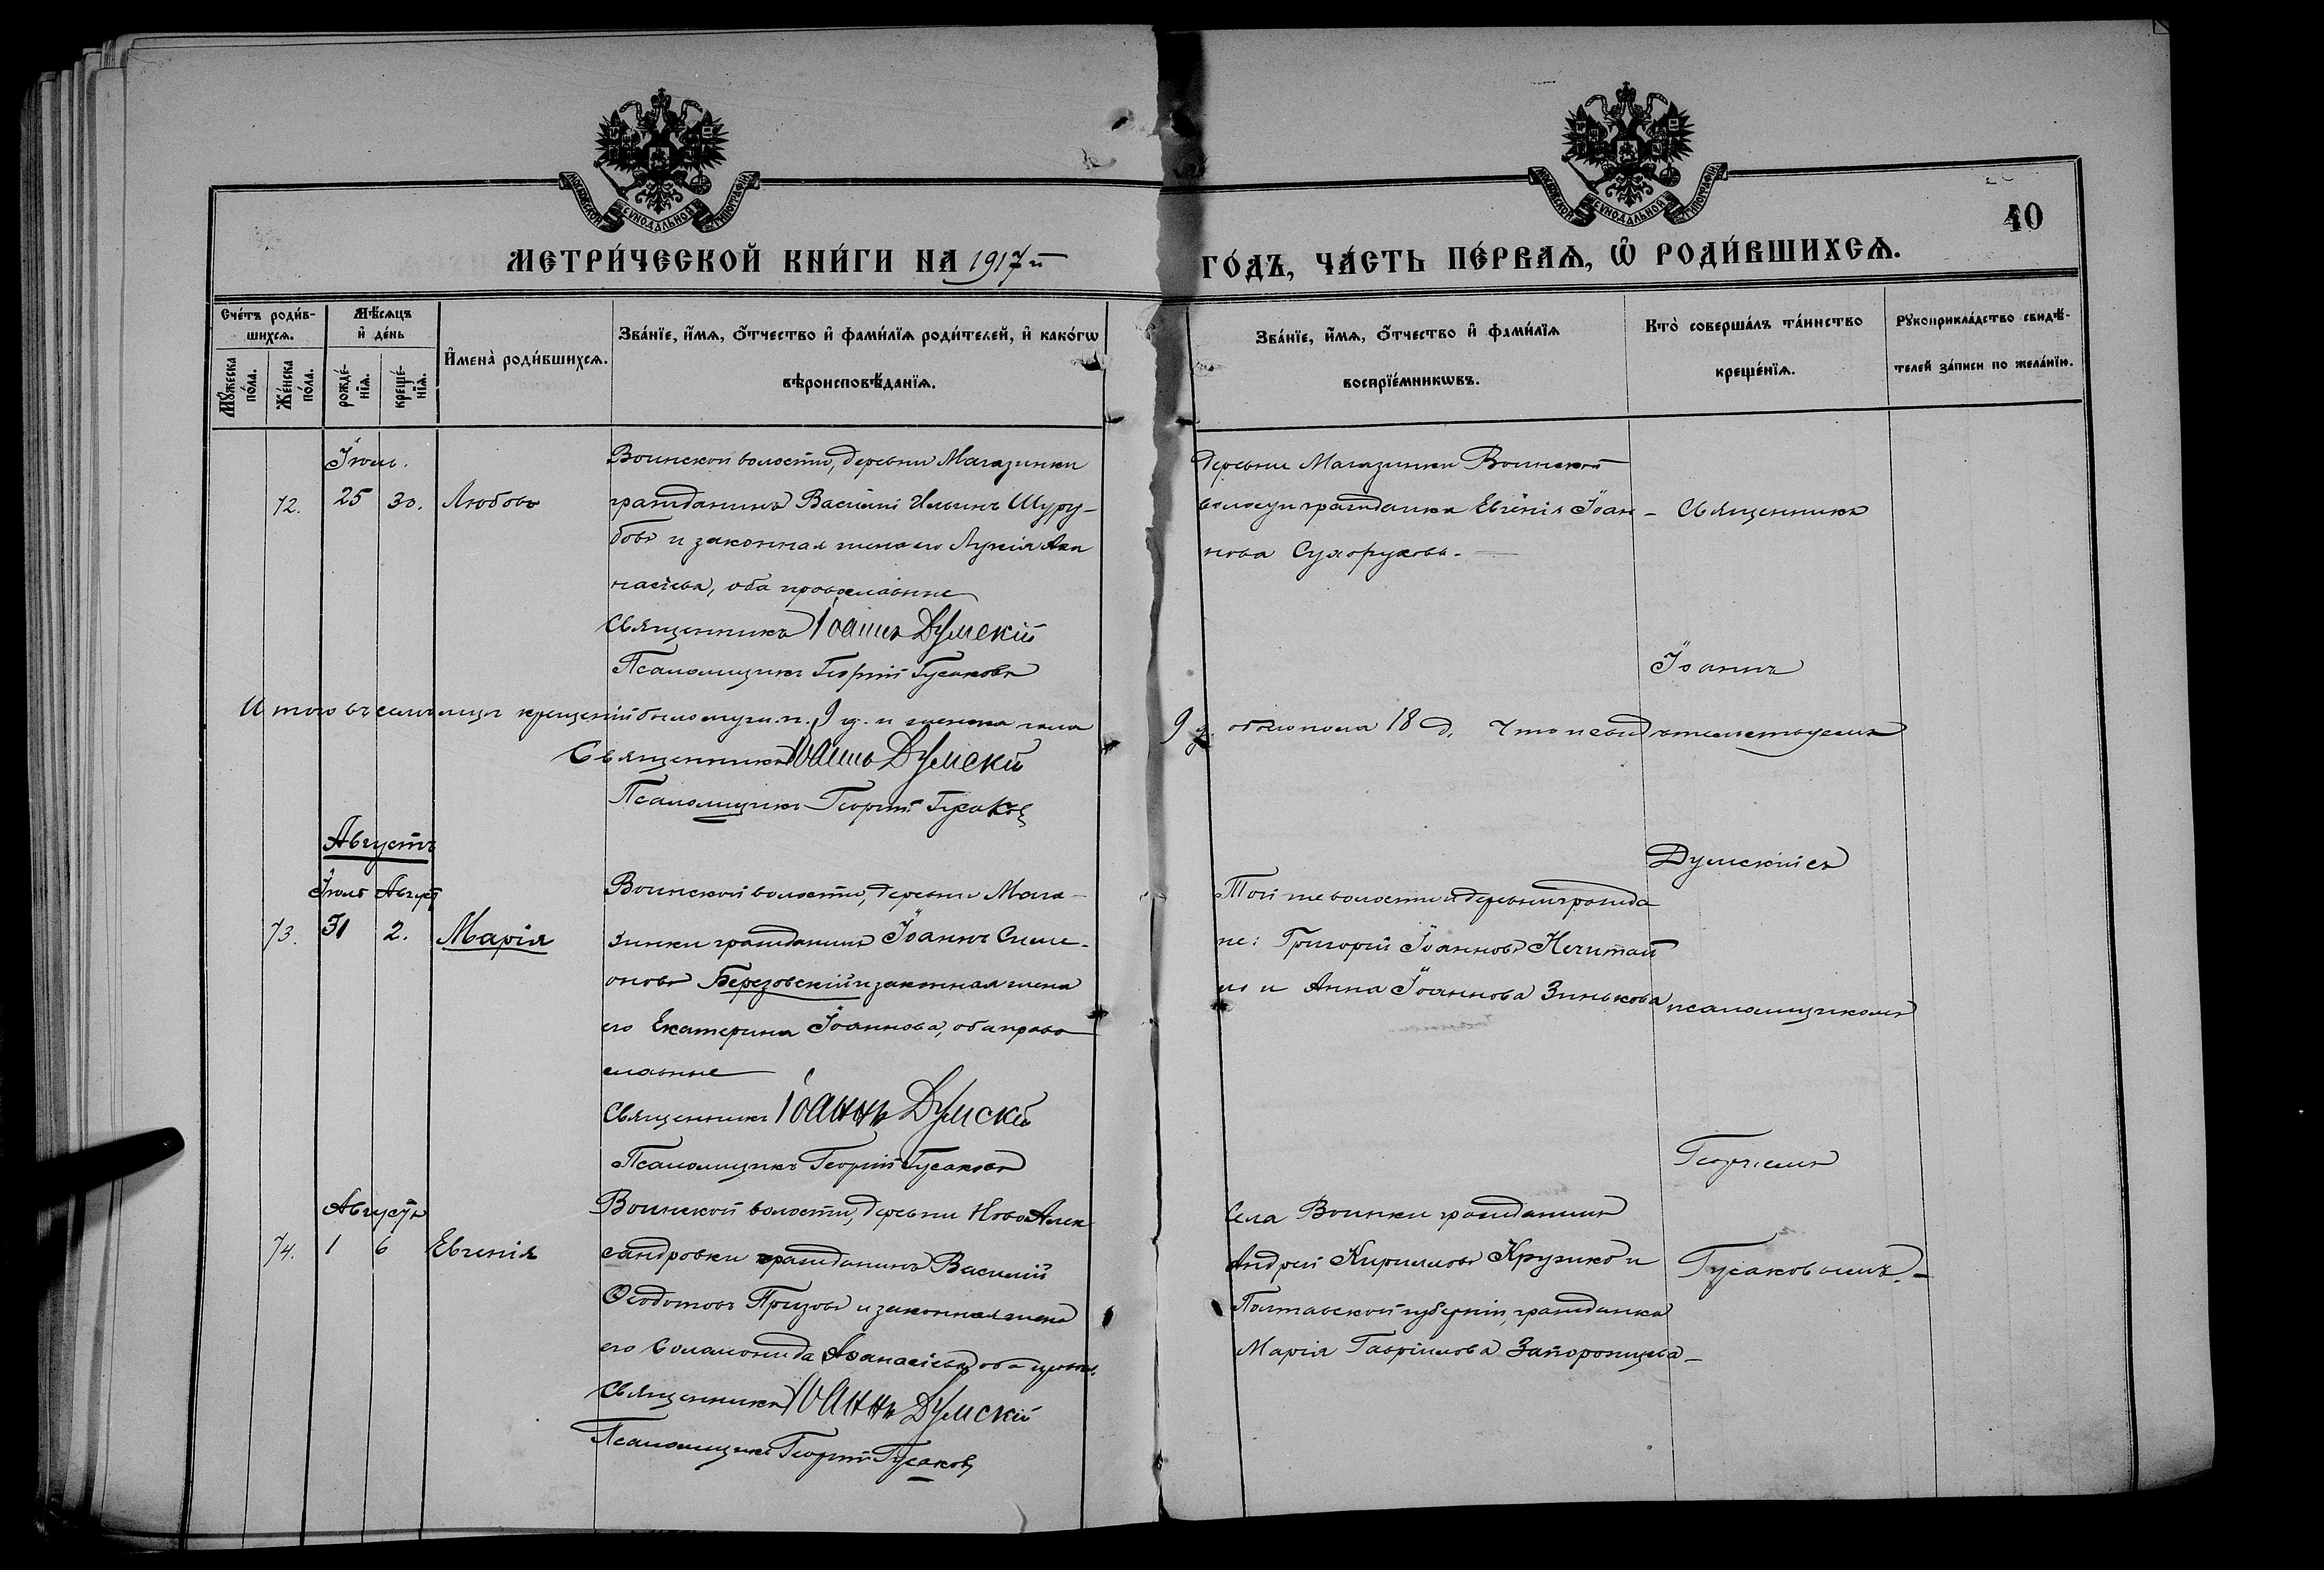 МОСКОВСКОЙ СѴНОДАЛЬНОЙ ТИПОГРАФІИ
МОСКОВСКОЙ СѴНОДАЛЬНОЙ ТИПОГРАФІИ
40
МЕТРИ́ЧЕСКОЙ КНИ́ГИ НА 1917й
ГО́ДЪ, ЧА́СТЬ ПЕ́РВАѦ, Ѡ҆ РОДИ́ВШИХСѦ.
Сче́тъ роди́в-
шихсѧ.
Мꙋ́жеска по́ла.
Же́нска по́ла.
Мѣ́сѧцъ
и҆ де́нь
рожде́-нїѧ.
креще́-нїѧ.
И҆мена̀ роди́вшихсѧ.
Зва́нїе, и҆́мѧ, ѻ҆́тчество и҆ фами́лїѧ роди́телей, и҆ како́гѡ
вѣроисповѣ́данїѧ.
Зва́нїе, и҆́мѧ, ѻ҆́тчество и҆ фами́лїѧ
воспрїе́мникѡвъ.
Кто̀ соверша́лъ та́инство
креще́нїѧ.
Рꙋкоприкла́дство свидѣ́-
телей за́писи по жела́нїю.
Іюль.
72. 25 30. Любовь
Воинской волости, деревни Магазинки
гражданинъ Василій Ильинъ Шуру-
бовъ и законная жена его Лукія Ана
насіева, оба православные
Священникъ Іоаннъ Думскій
Псаломщикъ Георгій Гусаковъ
Деревни Магазинки Воинской
волости гражданка Евгенія Іоан-
нова Сухорукова.
Священникъ
Іоаннъ
Итого въ іюлѣ мѣсяцѣ крещеній было муж. п. 9 д. и женска пола
9 д. обоего пола 18 д. Что и свидѣтельствуемъ
Священникъ Іоаннъ Думскій
Псаломщикъ Георгій Гусаковъ
Августъ
Іюль Август
73. 31 2. Марія
Воинской волости, деревни Мага-
зинки гражданинъ Іоаннъ Симе-
оновъ Березовскій и законная жена
его Екатерина Іоаннова, оба право
славные
Священникъ Іоаннъ Думскій
Псаломщикъ Георгій Гусаковъ
Той же волости и деревни гражда
не: Григорій Іоанновъ Нечитай
ло и Анна Іоаннова Зинькова
Думскій съ
псаломщикомъ
Георгіемъ
Августъ
74. 1 6 Евгенія
Воинской волости, деревни Ново Алек
сандровки гражданинъ Василій
Ѳеодотовъ Призовъ и законная жена
его Соломонида Аѳанасіева, оба правосл.
Священникъ Іоаннъ Думскій
Псаломщикъ Георгій Гусаковъ
Села Воинки гражданинъ
Андрей Кирилловъ Кружко и
Полтавской губерніи, гражданка
Марія Гавріилова Запорожцева
Гусаковымъ.